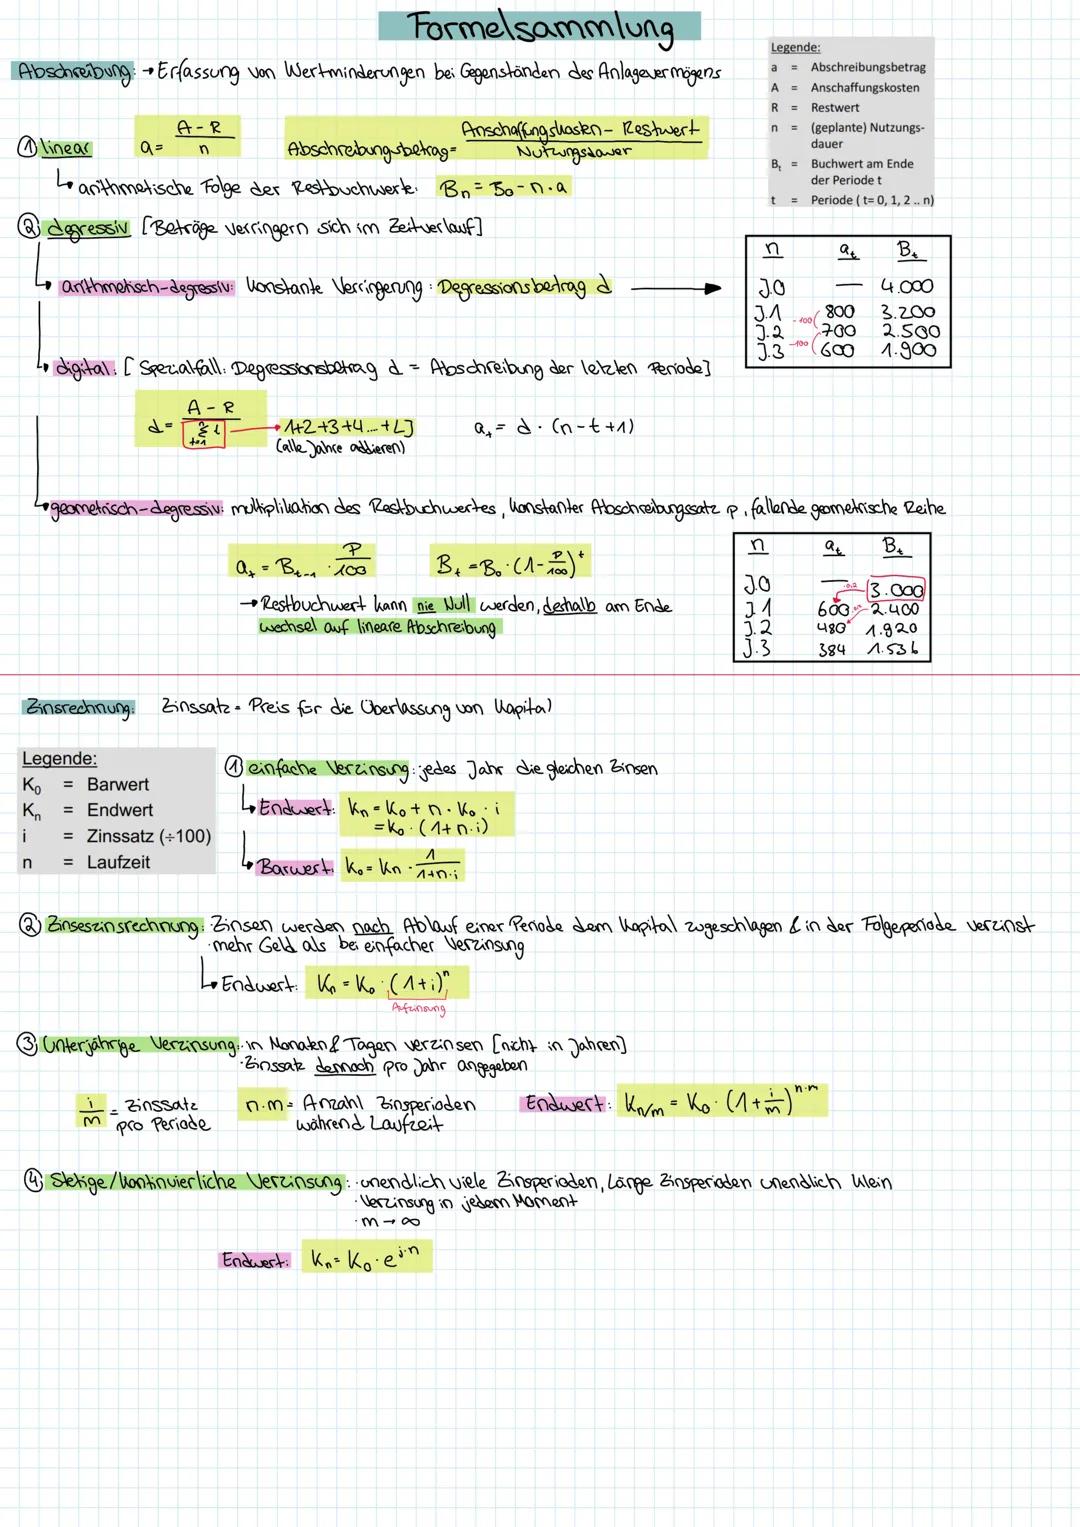 Formelsammlung
Abschreibung: → Erfassung von Wertminderungen bei Gegenständen des Anlagevermögens
Legende:
a = Abschreibungsbetrag
A = Anschaffungskosten
R = Restwert
n = (geplante) Nutzungs-
dauer
Bₜ = Buchwert am Ende
der Periode t
t = Periode ( t= 0, 1, 2 .. n)
① linear a = (A - R)/n Abschreibungsbetrag = (Anschaffungskosten - Restwert)/Nutzungsdauer
↳ arithmetische Folge der Restbuchwerte: Bₙ = B₀ - n · a
② degressiv [Beträge verringern sich im Zeitverlauf]
↳ arithmetisch-degressiv: konstante Verringerung: Degressionsbetrag d →
n aₜ Bₜ
J.0 — 4.000
J.1 800 3.200
-100
J.2 700 2.500
-100
J.3 600 1.900
↳ digital: [Spezialfall: Degressionsbetrag d = Abschreibung der letzten Periode]
d = (A - R)/Σ t t=1 → 1+2+3+4...+L]
(alle Jahre addieren)
aₜ = d · (n-t+1)
↳ geometrisch-degressiv: multiplikation des Restbuchwertes, konstanter Abschreibungssatz p, fallende geometrische Reihe
aₜ = Bₜ₋₁ · P/100 Bₜ = B₀ · (1 - P/100)ᵗ
→ Restbuchwert kann nie Null werden, deshalb am Ende
wechsel auf lineare Abschreibung
n aₜ Bₜ
J.0 — 3.000
·0,2
J.1 600 2.400
J.2 480 1.920
J.3 384 1.536
Zinsrechnung: Zinssatz = Preis für die Überlassung von Kapital
Legende:
K₀ = Barwert
Kₙ = Endwert
i = Zinssatz (÷100)
n = Laufzeit
① einfache Verzinsung: jedes Jahr die gleichen Zinsen
↳ Endwert: Kₙ = K₀ + n · K₀ · i
= K₀ · (1 + n·i)
↳ Barwert: K₀ = Kn · 1/(1+n·i)
② Zinseszinsrechnung: · Zinsen werden nach Ablauf einer Periode dem Kapital zugeschlagen & in der Folgeperiode verzinst
· mehr Geld als bei einfacher Verzinsung
↳ Endwert: Kₙ = K₀ · (1+i)ⁿ
Aufzinsung
③ Unterjährige Verzinsung: · in Monaten & Tagen verzinsen [nicht in Jahren]
· Zinssatz dennoch pro Jahr angegeben
i/m = Zinssatz
pro Periode
n·m = Anzahl Zinsperioden
während Laufzeit
Endwert: Kn/m = K₀ · (1 + i/m)ⁿ·ᵐ
④ Stetige/kontinuierliche Verzinsung: · unendlich viele Zinsperioden, Länge Zinsperioden unendlich klein
· Verzinsung in jedem Moment
· m → ∞
Endwert: Kₙ = K₀ · e^j·n